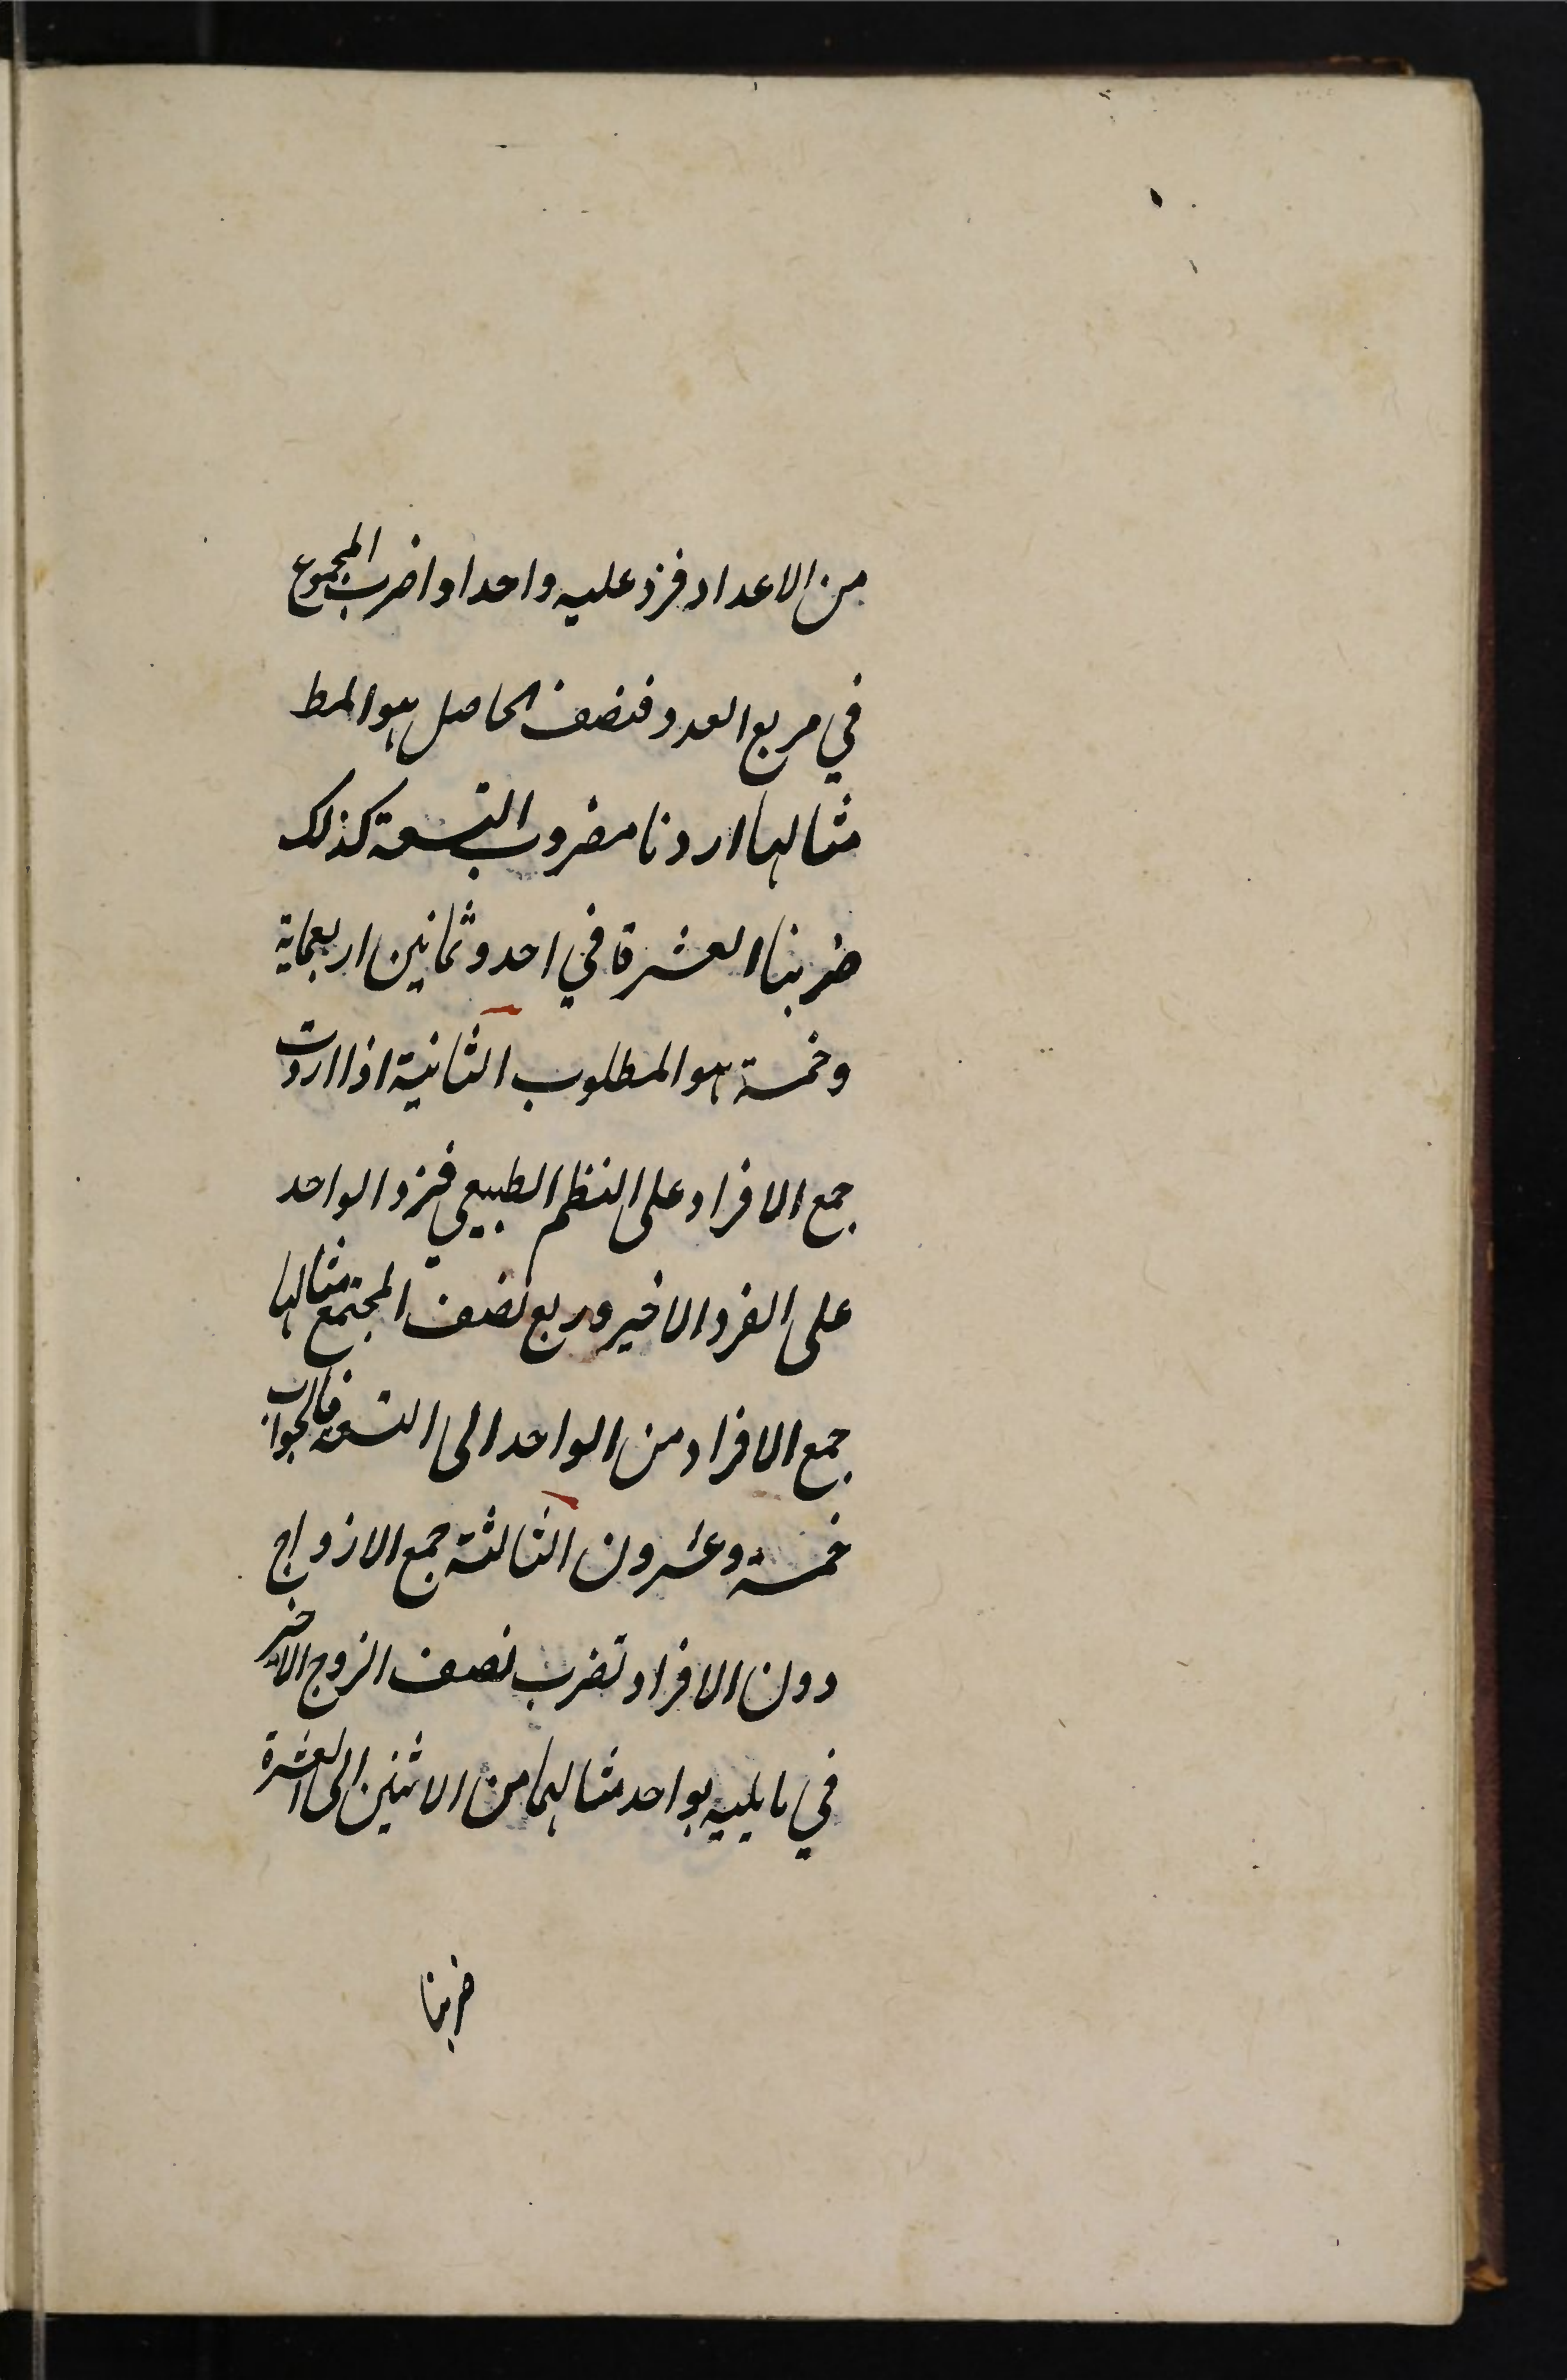 من الاعداد فزد عليه واحدا واضرب المجموع
في مربع العدد فنصف الحاصل هو المط
مثالها اردنا مضروب التسعة كذلك
ضربنا العشرة في احد وثمانين اربعماية
وخمسة هو المطلوب الثانية اذا اردت
جمع الافراد على النظم الطبيعي فزد الواحد
على الفرد الاخير وربع نصف المجتمع مثالها
جمع الافراد من الواحد الى التسعة فالجواب
خمسة وعشرون الثالثة جمع الازواج
دون الافراد تضرب نصف الزوج الاخير
في ما يليه بواحد مثالها من الاثنين الى العشرة
ضربنا